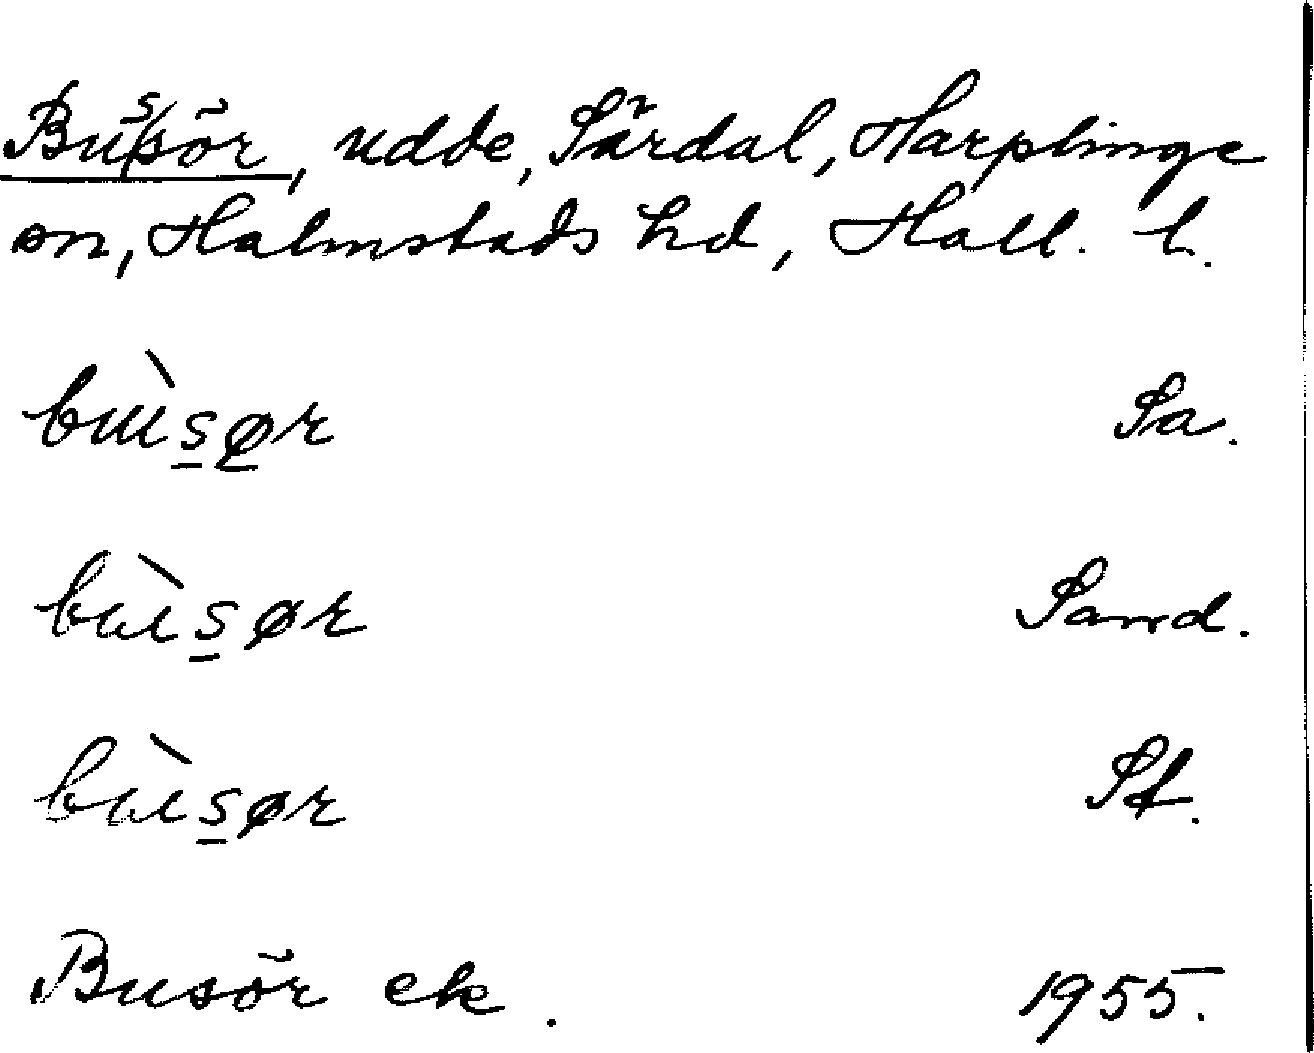 Bussör, udde, Särdal, Harplinge
sn, Halmstads hd, Hall. l.
bu̇̀s̲ø̲r Sa.
bùs̲ør Sand.
bùs̲ør Sf.
Busör ek. 1955.